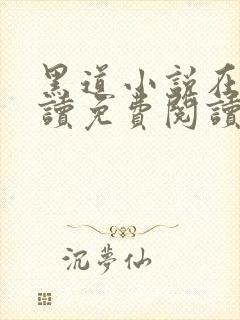 黑道小説在
讀免費閱讀
沉夢仙